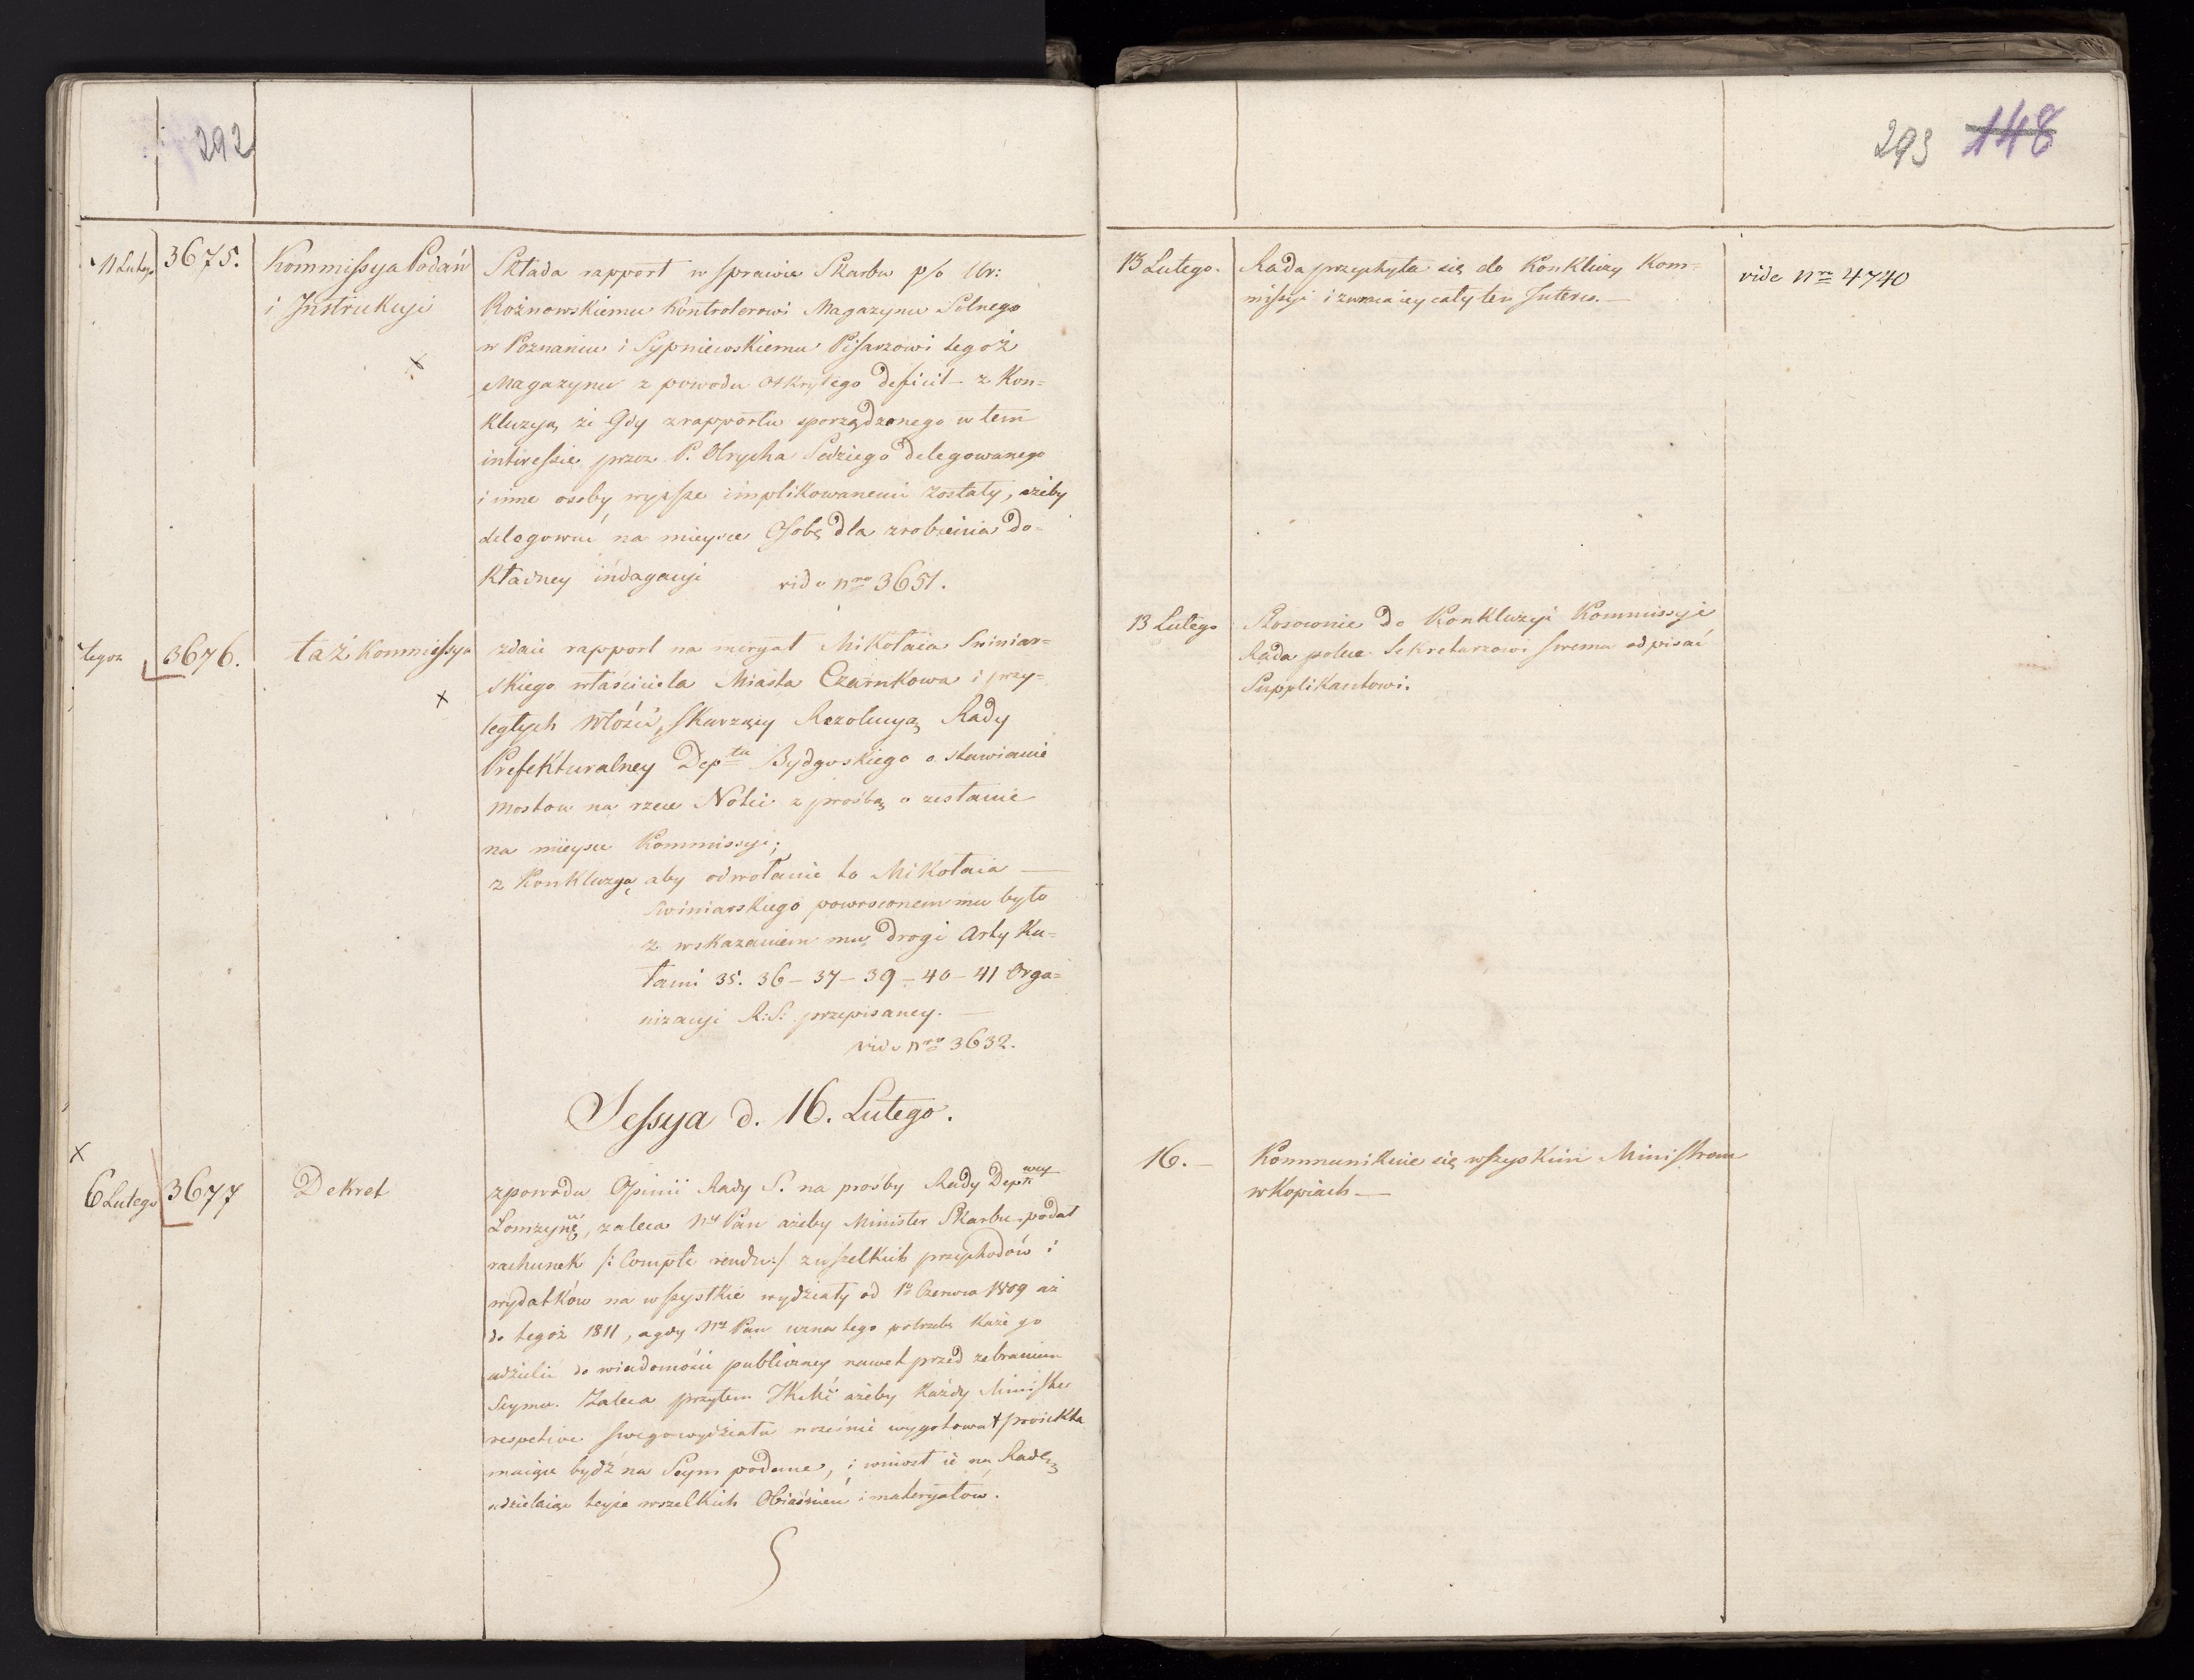 292
11 Lutego
3675.
Kommissya Podań
i Instrukcyi
Składa rapport w sprawie Skarbu p/o Ur:
Rożnowskiemu Kontrolerowi Magazynu Solnego
w Poznaniu i Sypniewskiemu Pisarzowi tegoż
Magazynu z powodu odkrytego deficit – z Kon=
kluzyą, że Gdy z rapportu sporządzonego w tem
interessie przez P. Ulrycha Sędziego delegowanego
i inne osoby wyższe implikowanemi zostały, ażeby
delegować na mieysce Osobę dla zrobienia do=
kładney indagacyi vide nro 3651.
tegoż
3676.
taż Kommissya
zdaie rapport na memoryał Mikołaia Swiniar=
skiego właściciela Miasta Czarnkowa i przy=
ległych włości, skarzący Rezolucyą Rady
Prefekturalney Deptu Bydgoskiego o stawianie
mostow na rzece Noteci z prośbą o zesłanie
na mieysce Kommissyi;
z Konkluzyą aby odwołanie to Mikołaia —
Swiniarskiego powroconem mu było
z wskazaniem mu drogi Artyku=
łami 35. 36 – 37 – 39 – 40 – 41 Orga=
nizacyi R: S: przepisaney. —
vide nro 3632.
Sessya d. 16. Lutego.
6 Lutego
3677
Dekret
z powodu Opinii Rady S. na prośby Rady Deptwey
Łomżyń, zaleca Ny Pan ażeby Minister Skarbu podał
rachunek /: Compte rendu :/ z wszelkich przychodów i
wydatków na wszystkie wydziały od 1o Czerwca 1809 aż
do tegoż 1811, a gdy Ny Pan uzna tego potrzebę każe go
udzielić do wiadomości publiczney nawet przed zebraniem
Seymu. Zaleca przytem ażeby każdy Minister
respective swego wydziału wcześnie wygotował proiekta
maiące bydź na Seym podane, i wniosł ie na Radę,
udzielaiąc teyże wszelkich Obiaśnień i materyałow.
293 148
13 Lutego.
Rada przychyla się do Konkluzyi Kom=
missyi i zwraca iey cały ten Interes. —
vide Nro 4740
13 Lutego
Stosownie do Konkluzyi Kommissyi
Rada poleca Sekretarzowi swemu odpisać
Supplikantowi.
16. —
Kommunikuie się wszyskim Ministrom
w Kopiach —